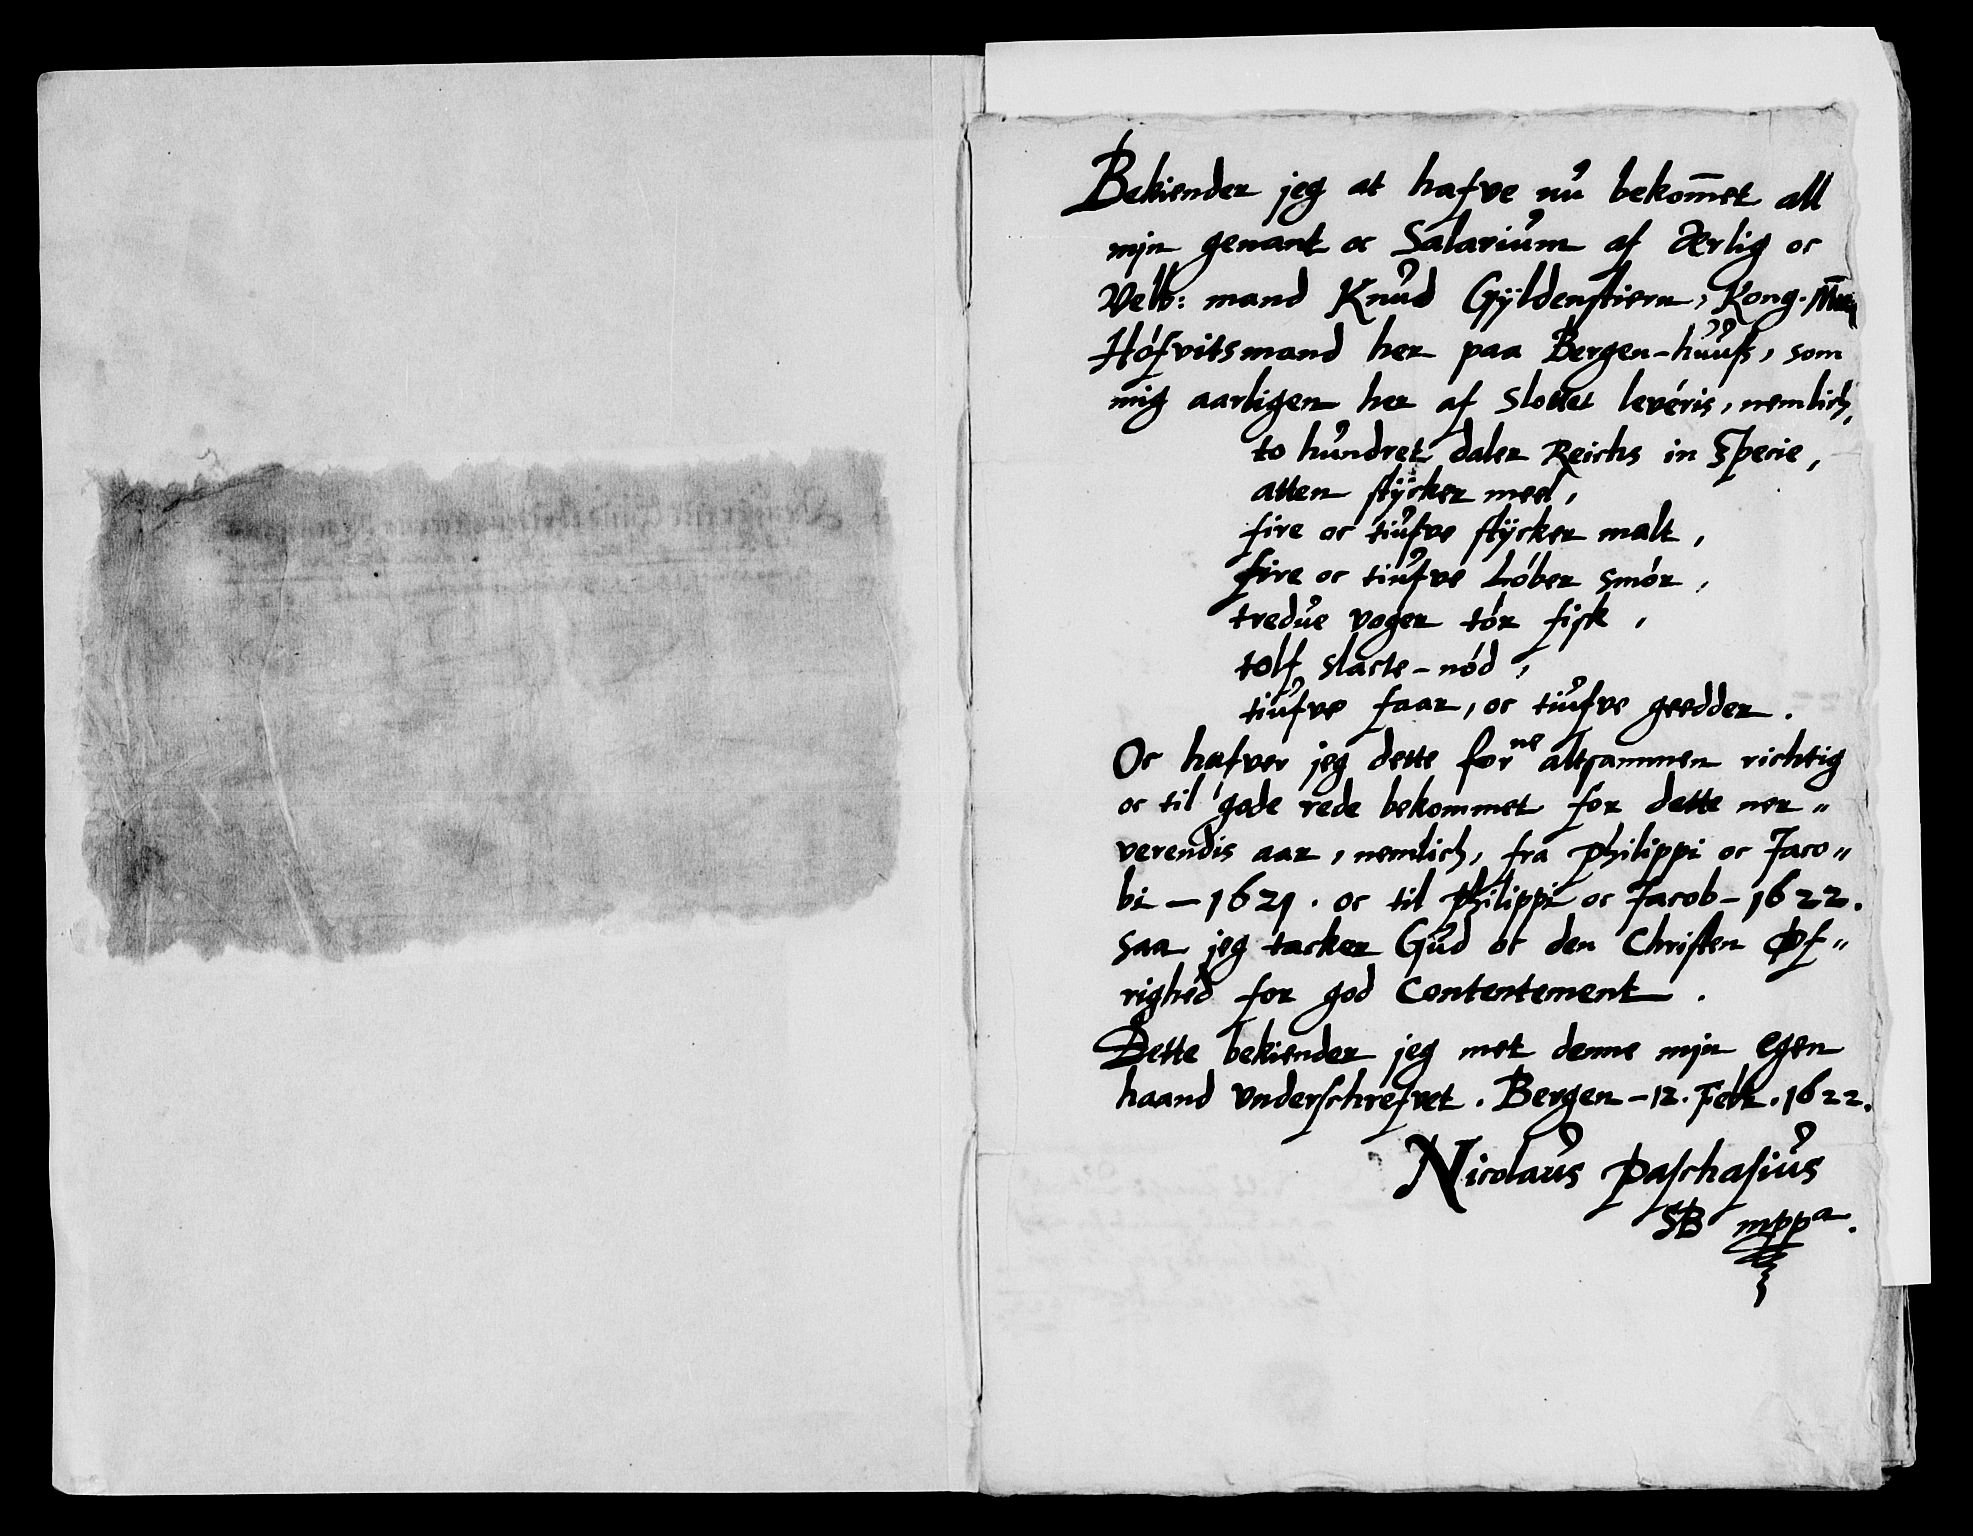 Bekiender jeg at hafve nu bekom̄et all
mijn genant oc Salarium af Ærlig oc
Velb: mand Knud Gÿldenstiern, Kong.
Höfvitsmand her paa Bergen-huuss, som
mig aarligen her af Slottet leveris, nemlich,
to hundret daler Reichs in Specie,
atten stÿcker meel,
fire oc tiufve stÿcker malt,
fire oc tiufve Löber Smör,
tredue voger tör fisk,
tolf slacte-nöd,
tiufve faar, oc tiufve geedder.
Oc hafver jeg dette forne altsammen richtig
oc til gode rede bekommet for dette ner„
verendis aar, nemlich, fra Philippi oc Jaco„
bi - 1621. oc til Philippi oc Jacob - 1622.
saa jeg tacker Gud oc den Christen Öf„
righed for god Contentement.
Dette bekiender jeg met denne mijn egen
haand underschrefvet. Bergen - 12. Febr. 1622.
Nicolaus Paschasius
SB mppa.